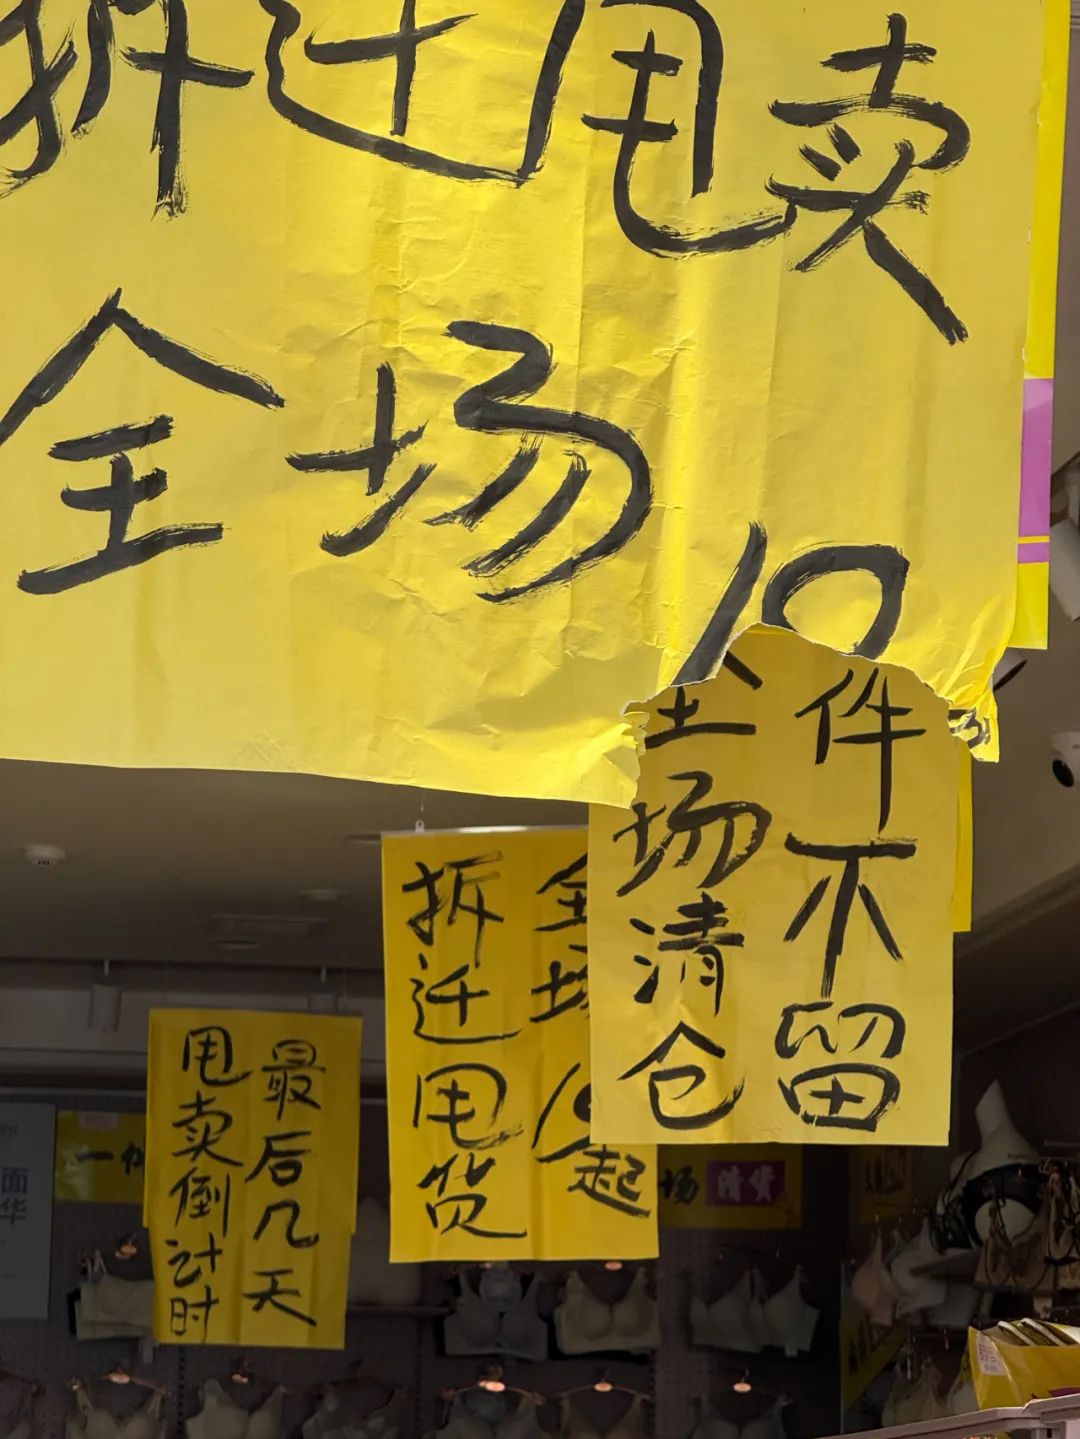 拆迁甩卖
全场10
全场清仓
件不留
拆迁甩货
全场10起
最后几天
甩卖倒计时
一件
场清货
面
华